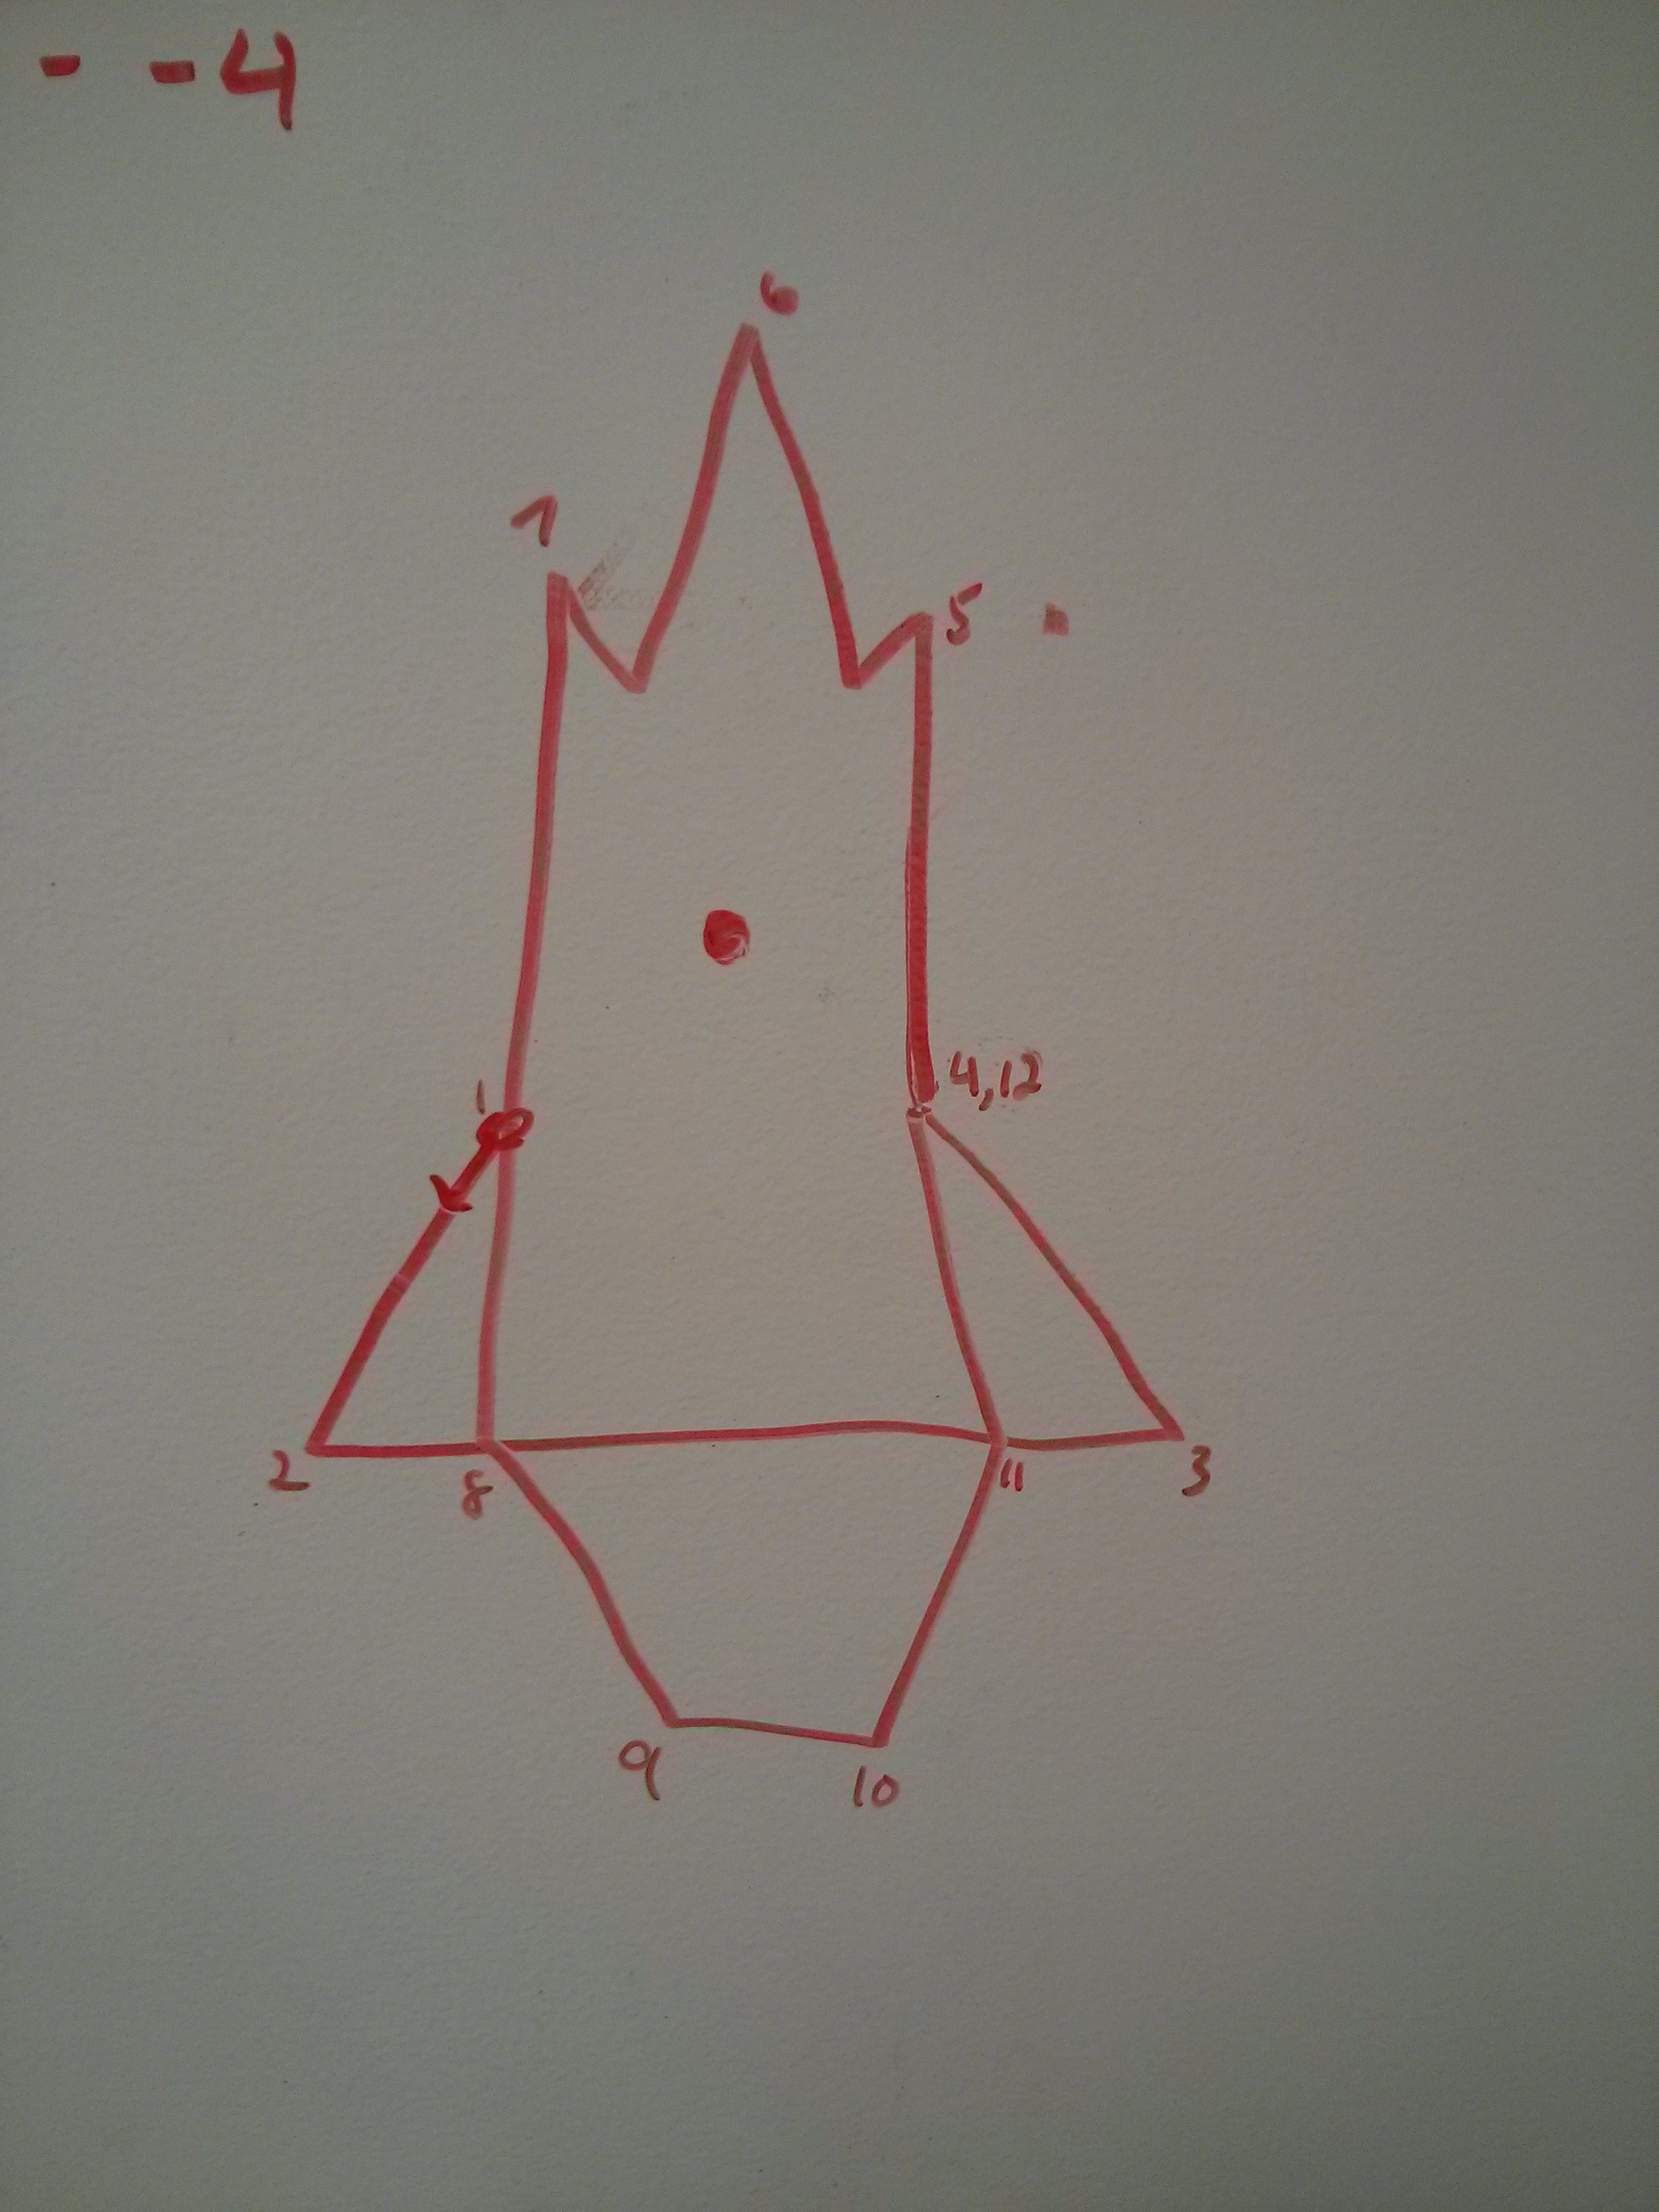 - -4
6
7
5
1
4,12
2
8
11
3
9
10